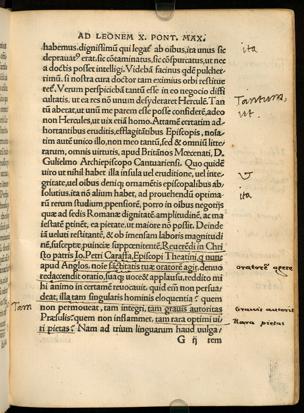 AD LEONEM X. PONT. MAX.
habemus, dignissimū qui legat̄ ab oībus, ita unus sic
ita
deprauat' erat, sic cōtaminatus, sic cōspurcatus, ut nec
a doctis posset intelligi. Videbā facinus qđē pulcher-
rimū, si nostra cura doctor tam eximius orbi restitue
ret. Verum perspiciebā tantū esse in eo negocio diffi
cultatis, ut ea res nō unum desyderaret Herculē. Tan
Tantum,
tū aberat, ut unū me parem esse posse confiderē, adeo
ut.
non Hercules, ut uix etiā homo. Attamē certatim ad-
hortantibus eruditis, efflagitātibus Episcopis, nosta-
tim autē unico illo, non meo tantū, sed & omniū litte
rarum, omnis uirtutis, apud Britānos Mœcenati, D.
Gulielmo Archiepiscopo Cantuariensi. Quo quidē
uiro ut nihil habet illa insula uel eruditione, uel inte
gritate, uel oībus deniq; ornamētis episcopalibus ab
solutius, ita nō alium habet, ad prouehendū optima-
ita
rum rerum studium, ppensiorē, porro in oībus negotijs
quæ ad sedis Romanæ dignitatē, amplitudinē, ac ma
iestatē ptinet, ea pietate, ut maiore nō possit. Deinde
iā ueluti restitante, & ob immensam laboris magnitudi
nē, susceptæ, puinciæ suppœnitente, Reuerēdi in Chri
sto patris Io. Petri Caraffa, Episcopi Theatini, q nunc
apud Anglos, noīe sctitatis tuæ oratorē agit, denuo
oratorē agere
redaccendit oratio, suaq; uoce & applausu, reddito mi
hi animo in certamē reuocauit. quid eīm non persua/
deat, illa tam singularis hominis eloquentia? quem
non permoueat, tam integri, tam grauis autoritas
Tam
Grauis autorit.
Præsulis? quem non inflammet, tam rara optimi ui/
Rara pietas
ri pietas? Nam ad trium linguarum haud uulga/
G ij
rem